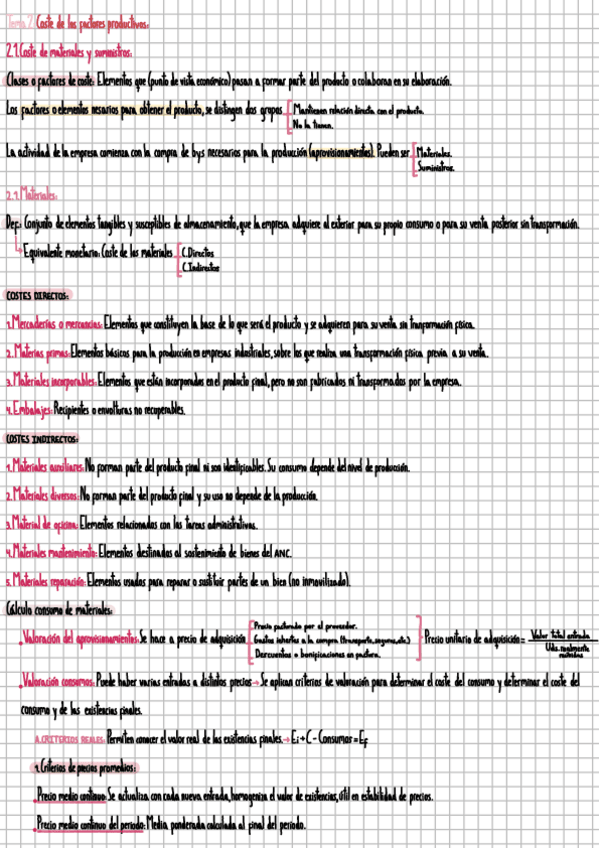 Tema 2. Coste de los factores productivos:
2.1. Coste de materiales y suministros:
Clases o factores de coste: Elementos que (punto de vista económico) pasan a formar parte del producto o colaboran en su elaboración.
Los factores o elementos nesarios para obtener el producto, se distingen dos grupos
Mantienen relación directa con el producto.
No la tienen.
La actividad de la empresa comienza con la compra de bys necesarios para la producción (aprovisionamientos). Pueden ser
Materiales.
Suministros.
2.1. Materiales:
Def.: Conjunto de elementos tangibles y susceptibles de almacenamiento, que la empresa adquiere al exterior para su propio consumo o para su venta posterior sin transformación.
Equivalente monetario: Coste de los materiales
C.Directos
C.Indirectos
COSTES DIRECTOS:
1. Mercaderías o mercancías: Elementos que constituyen la base de lo que será el producto y se adquieren para su venta sin tranformación física.
2. Materias primas: Elementos básicos para la producción en empresas industriales, sobre los que realiza una transformación física previa a su venta.
3. Materiales incorporables: Elementos que están incorporados en el producto final, pero no son fabricados ni transformados por la empresa.
4. Embalajes: Recipientes o envolturas no recuperables.
COSTES INDIRECTOS:
1. Materiales auxiliares: No forman parte del producto final ni son identificables. Su consumo depende del nivel de producción.
2. Materiales diversos: No forman parte del producto final y su uso no depende de la producción.
3. Material de oficina: Elementos relacionados con las tareas administrativas.
4. Materiales mantenimiento: Elementos destinados al sostenimiento de bienes del ANC.
5. Materiales reparación: Elementos usados para reparar o sustituir partes de un bien (no inmovilizado).
Cálculo consumo de materiales:
Valoración del aprovisionamientos: Se hace a precio de adquisición
Precio facturado por el proveedor.
Gastos ihertes a la compra (transporte, seguros, etc.)
Dercuentos o bonificaciones en factura.
Precio unitario de adquisición = Valor total entrada
Uds. realmente recibidas
Valoración consumos: Puede haber varias entradas a distintos precios → Se aplican criterios de valoración para determinar el coste del consumo y determinar el coste del
consumo y de las existencias finales.
A.CRITERIOS REALES: Permiten conocer el valor real de las existencias finales. → Ei + C - Consumos = Ef
1. Criterios de precios promedios:
Precio medio continuo: Se actualiza con cada nueva entrada, homogeniza el valor de existencias, útil en estabilidad de precios.
Precio medio continuo del periodo: Media ponderada calculada al final del periodo.